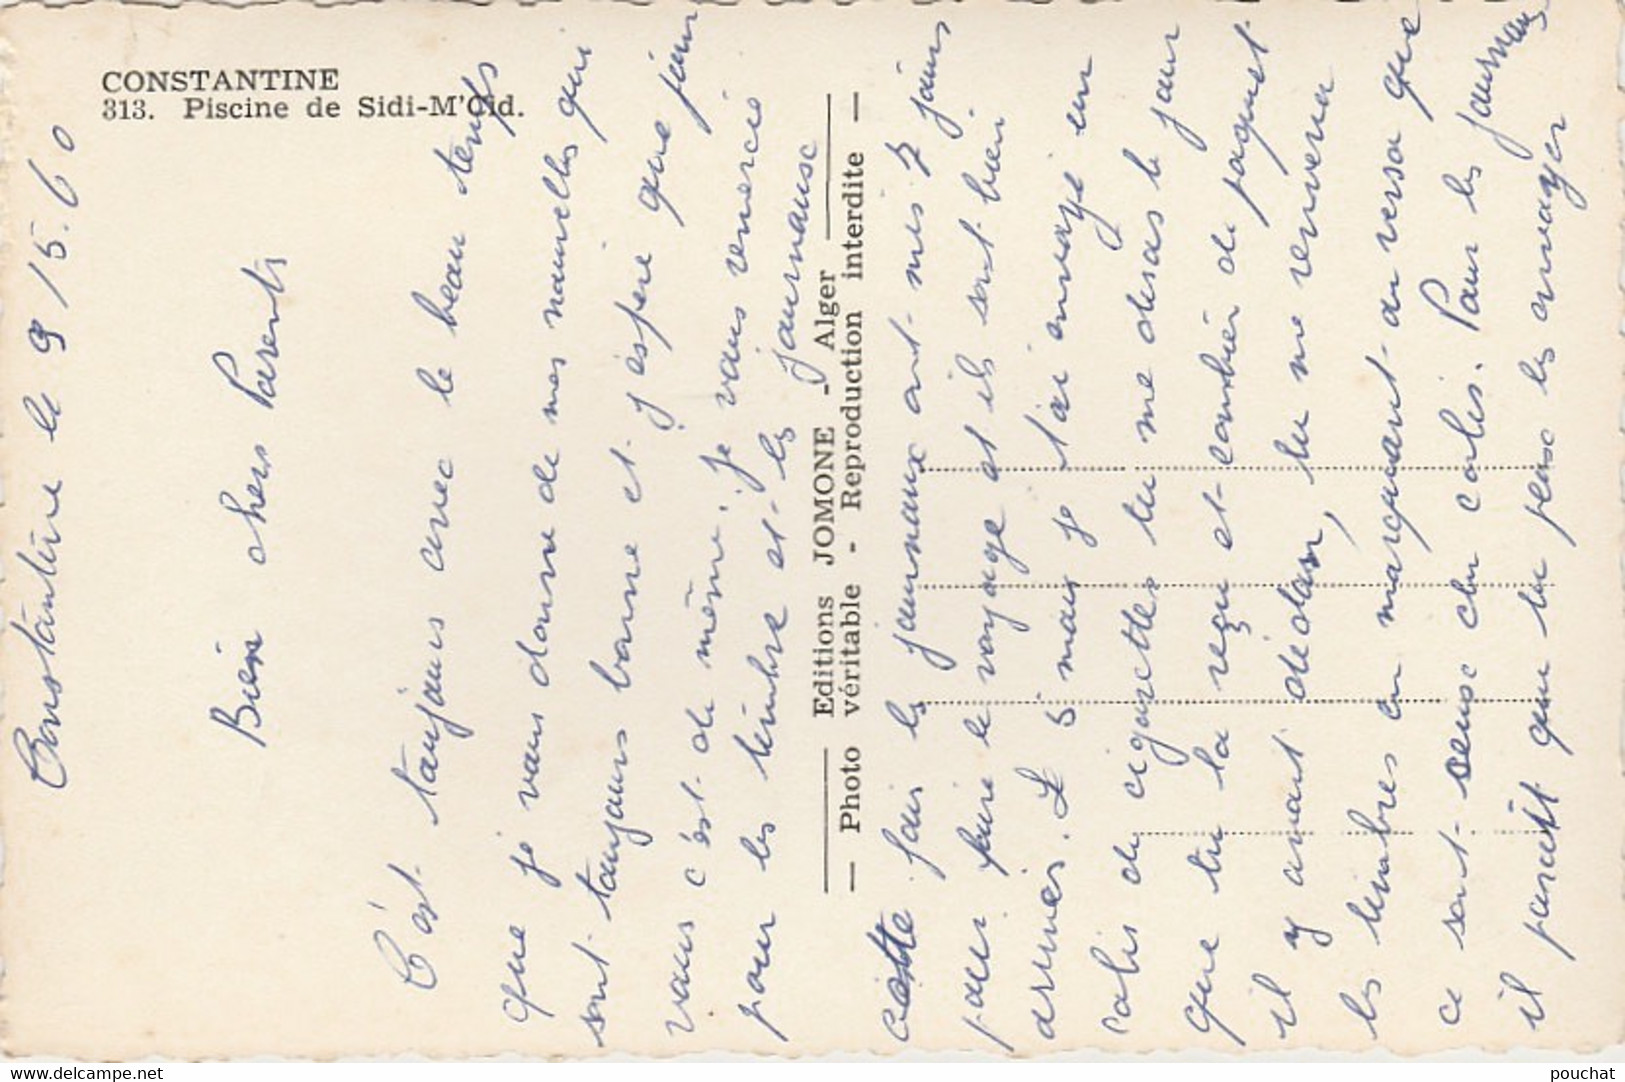 CONSTANTINE
313. Piscine de Sidi-M'Cid.
Constantine le 9/5.60
Bien chers Parents
C'est toujours avec le beau temps
que je vous donne de mes nouvelles qui
sont toujours bonne et j'espere que pour
vous c'est de même. Je vous remercie
pour les timbre et les journaux
Editions JOMONE - Alger
Photo véritable - Reproduction interdite
cette fois les journaux ont mis 7 jours
pour faire le voyage et ils sont bien
arriver. Le 5 mai je t'ai envoyé un
colis de cigarettes tu me diras le jour
que tu la reçu et combien de paquet
il y avait dedan, tu me renverra
les timbres en marquant au verso que
ce sont ceux du colis. Pour les journaux
il parait que tu peus les envoyer
www.delcampe.net
pouchat